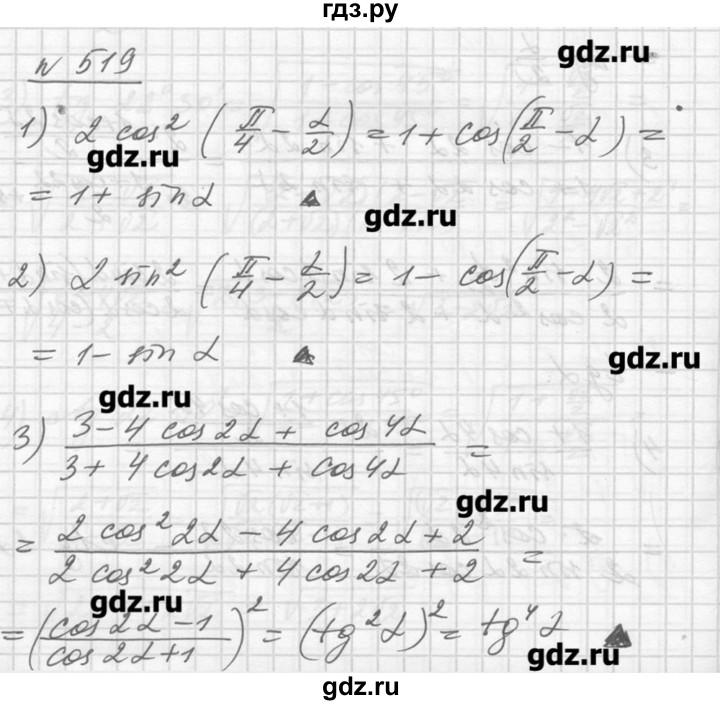 гдз.ру
n 519
gdz.ru
1) 2 cos² (π/4 − α/2) = 1 + cos(π/2 − α) =
gdz.ru
= 1 + sin α ▲
gdz.ru
2) 2 sin² (π/4 − α/2) = 1 − cos(π/2 − α) =
= 1 − sin α ▲
gdz.ru
gdz.ru
3) (3 − 4 cos 2α + cos 4α)/(3 + 4 cos 2α + cos 4α) =
gdz.ru
= (2 cos² 2α − 4 cos 2α + 2)/(2 cos² 2α + 4 cos 2α + 2) =
gdz.ru
= ((cos 2α − 1)/(cos 2α + 1))² = (tg² α)² = tg⁴ α ▲
gdz.ru
gdz.ru